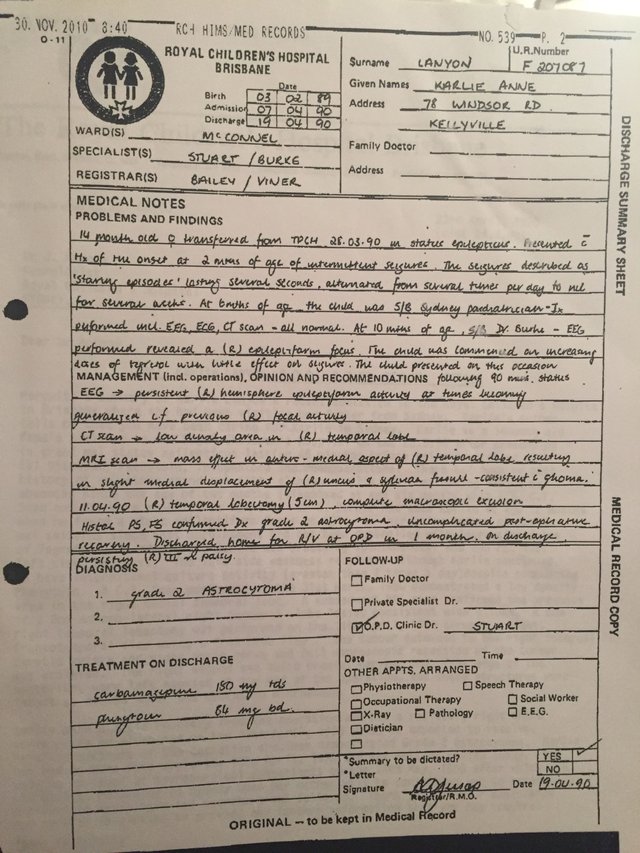 30. NOV. 2010 8:40 RCH HIMS/MED RECORDS NO. 539 P. 2
0-11
ROYAL CHILDREN'S HOSPITAL
BRISBANE
Date
Birth 03 02 89
Admission 07 04 90
Discharge 19 04 90
WARD(S) McCONNEL
SPECIALIST(S) STUART / BURKE
REGISTRAR(S) BAILEY / VINER
U.R. Number
Surname LANYON F 207087
Given Names KARLIE ANNE
Address 78 WINDSOR RD
KELLYVILLE
Family Doctor
Address
DISCHARGE SUMMARY SHEET
MEDICAL NOTES
PROBLEMS AND FINDINGS
14 month old ♀ transferred from TPCH 28.03.90 in status epilepticus. Presented c̄
Hx of the onset at 2 mths of age of intermittent seizures. The seizures described as
'staring episodes' lasting several seconds, alternated from several times per day to nil
for several weeks. At 6mths of age the child was S/B Sydney paediatrician - Ix
performed incl. EEG, ECG, CT scan - all normal. At 10 mths of age, S/B Dr. Burke - EEG
performed revealed a (R) epileptiform focus. The child was commenced on increasing
doses of tegretol with little effect on seizures. The child presented on this occasion
MANAGEMENT (incl. operations), OPINION AND RECOMMENDATIONS following 90 mins. status
EEG → persistent (R) hemisphere epileptiform activity at times becoming
generalized c.f previous (R) focal activity
CT scan → low density area in (R) temporal lobe
MRI scan → mass effect in antero-medial aspect of (R) temporal lobe resulting
in slight medial displacement of (R) uncus & sylvian fissure - consistent c̄ glioma.
11.04.90 (R) temporal lobectomy (5cm), complete macroscopic excision
Histol PS, FS confirmed Dx grade 2 astrocytoma. Uncomplicated post-operative
recovery. Discharged home for R/V at OPD in 1 month. On discharge,
persisting (R) III n palsy.
DIAGNOSIS
1. grade 2 ASTROCYTOMA
2.
3.
TREATMENT ON DISCHARGE
carbamazepine 150 mg tds
phenytoin 64 mg bd.
FOLLOW-UP
Family Doctor
Private Specialist Dr.
O.P.D. Clinic Dr. STUART
Date Time
OTHER APPTS. ARRANGED
Physiotherapy Speech Therapy
Occupational Therapy Social Worker
X-Ray Pathology E.E.G.
Dietician
*Summary to be dictated? YES
*Letter NO
Signature Date 19.04.90
Registrar/R.M.O.
MEDICAL RECORD COPY
ORIGINAL — to be kept in Medical Record